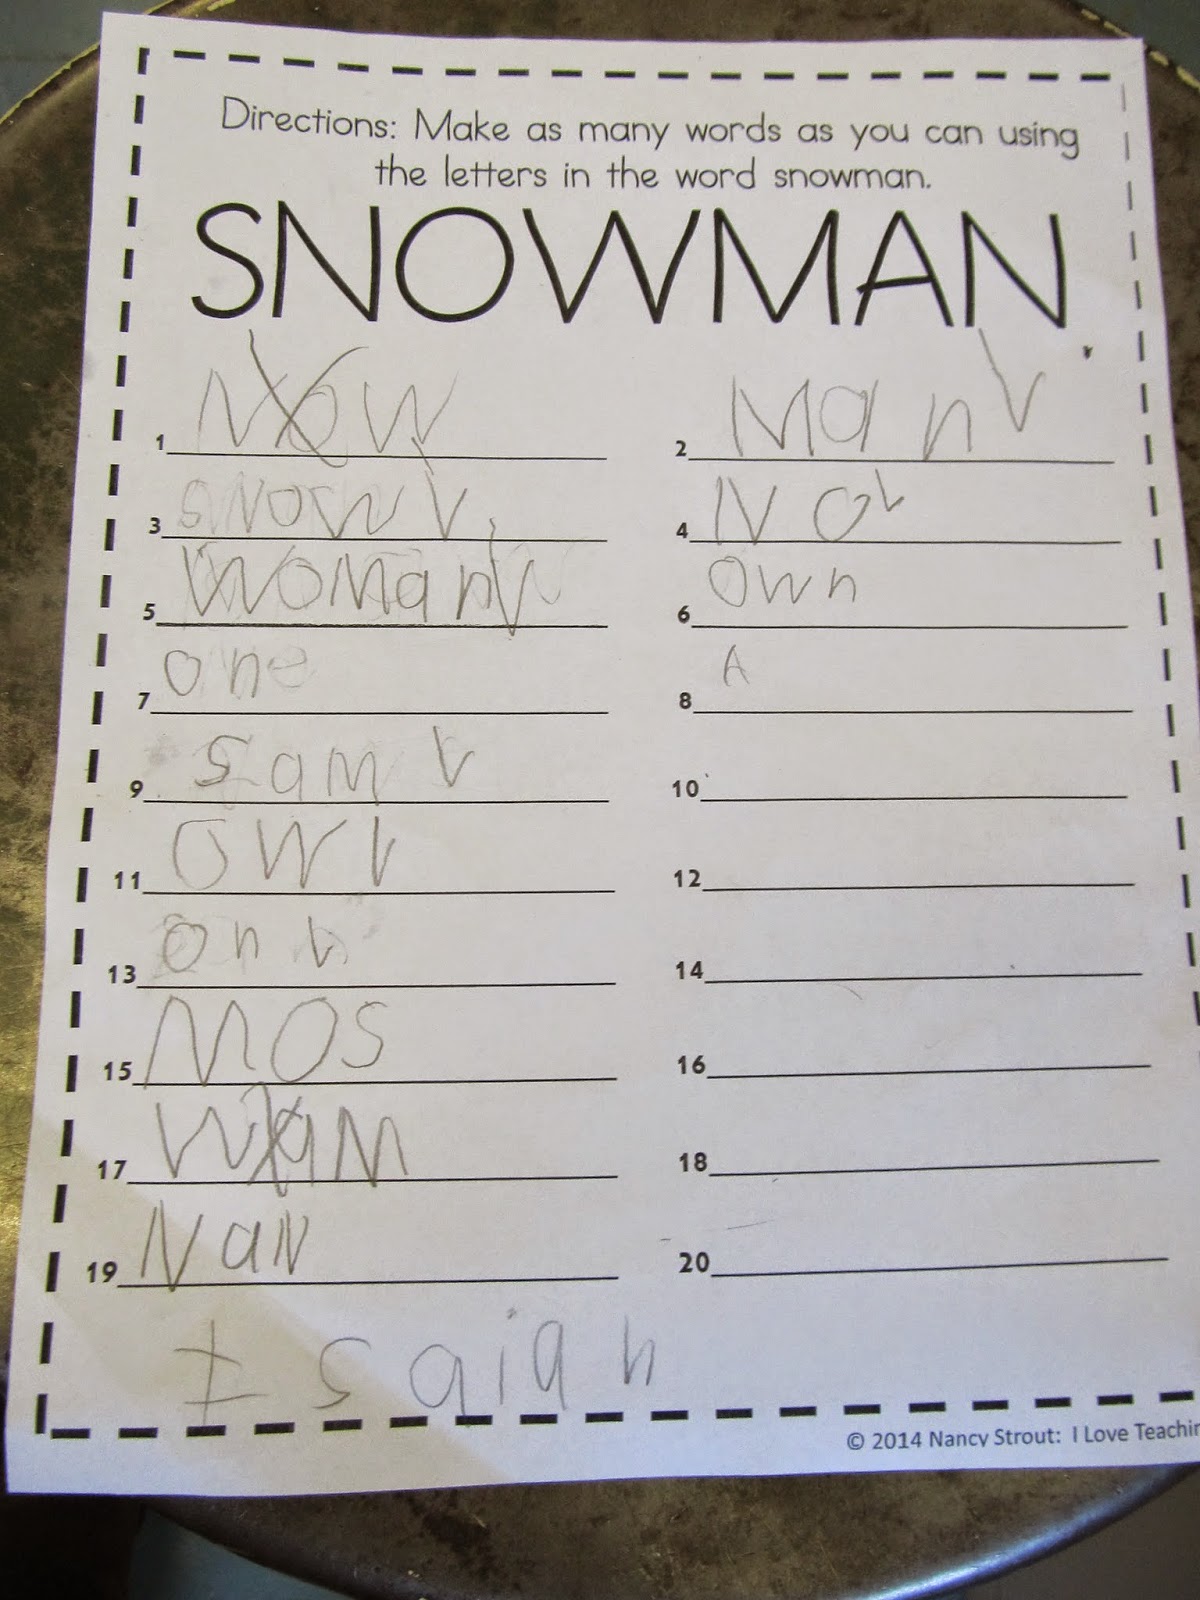 Directions: Make as many words as you can using
the letters in the word snowman.
SNOWMAN
1 NOW
2 Man
3 SNOW
4 NO
5 WOMan
6 Own
7 one
8 A
9 Sam
10
11 OW
12
13 on
14
15 MOS
16
17 WaM
18
19 NaN
20
Isaiah
© 2014 Nancy Strout: I Love Teachin